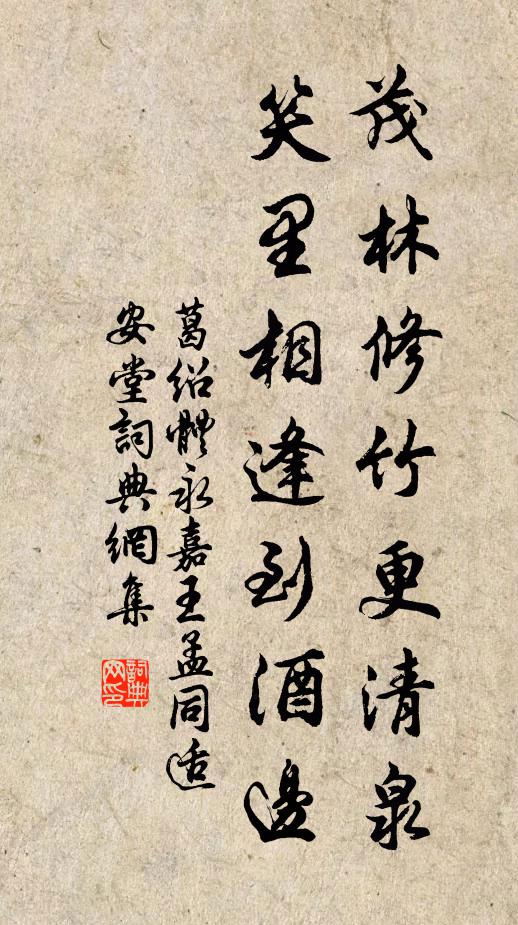 茂林修竹更清泉
笑里相逢到酒邊
葛紹體永嘉王孟同适
安堂詞典網集
詞典网印